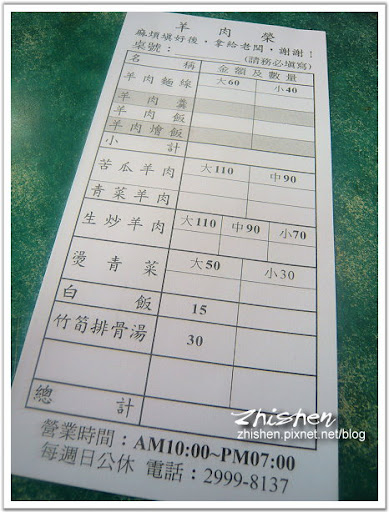 羊肉榮
麻煩填好後，拿給老闆，謝謝！
桌號： (請務必填寫)
名稱 金額及數量
羊肉麵線 大60 小40
羊肉羹
羊肉飯
羊肉燴飯
小計
苦瓜羊肉 大110 中90
青菜羊肉
生炒羊肉 大110 中90 小70
燙青菜 大50 小30
白飯 15
竹筍排骨湯 30
總計
營業時間：AM10:00~PM07:00
每週日公休 電話：2999-8137
zhishen
zhishen.pixnet.net/blog